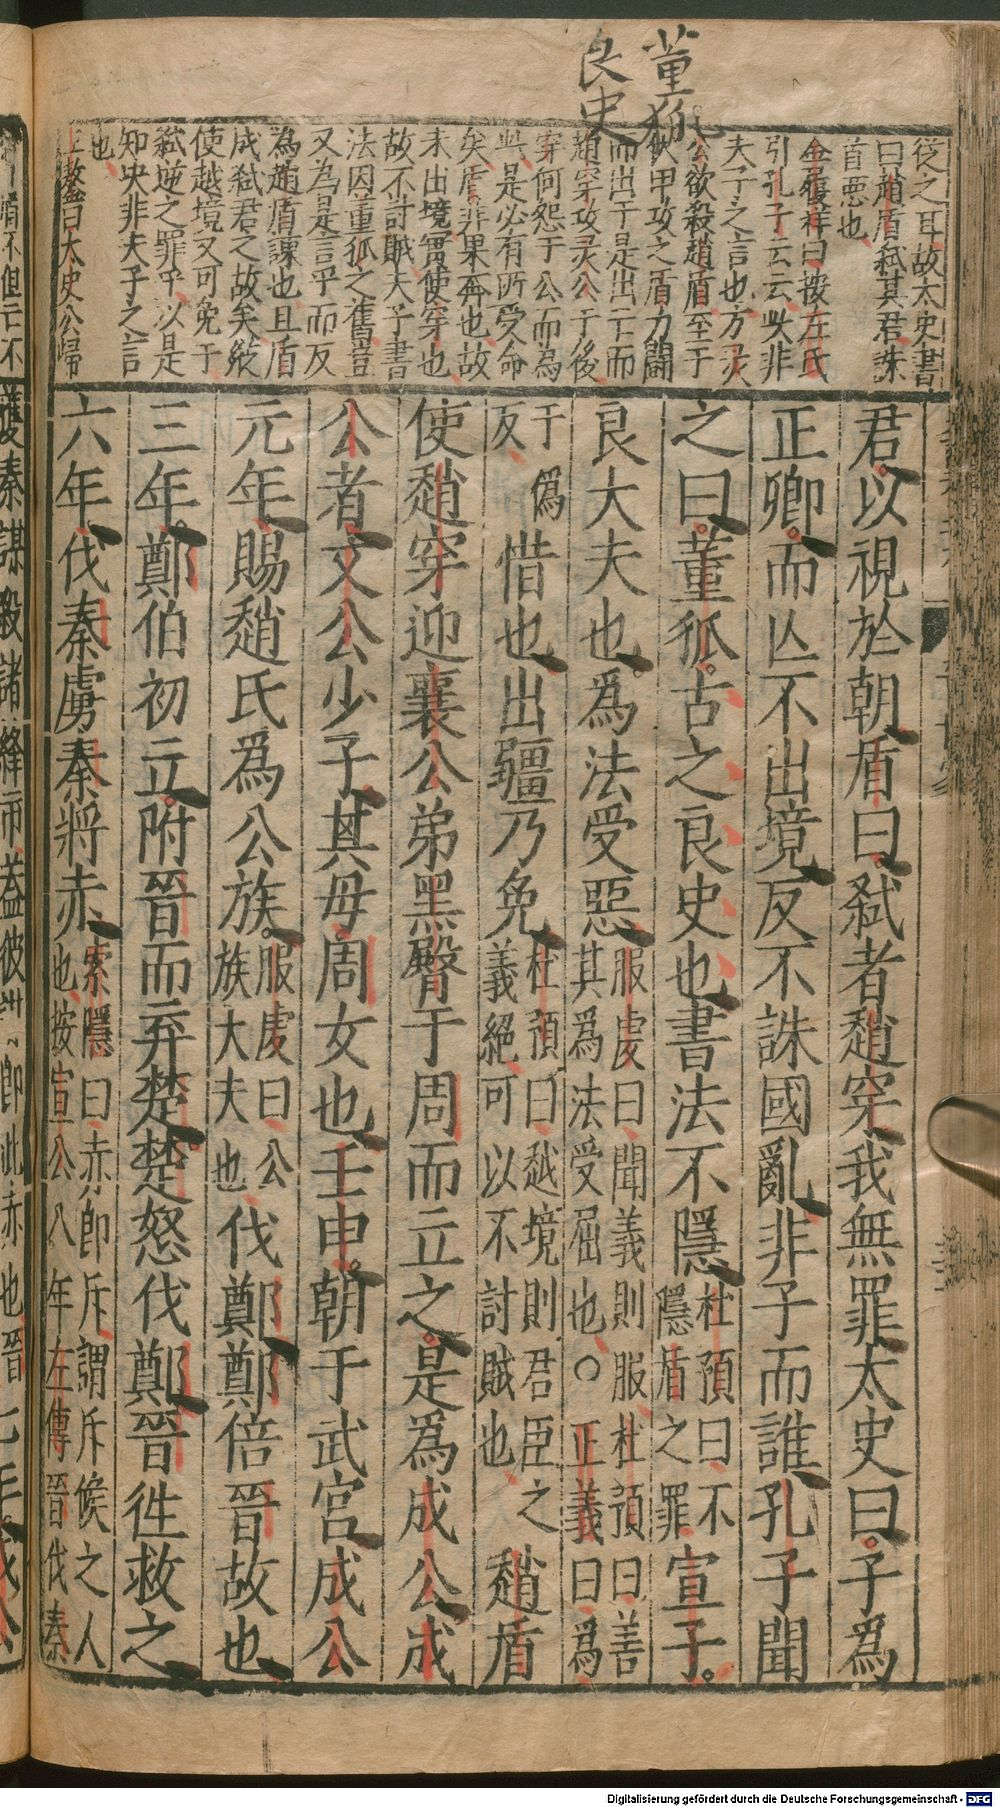 董狐
良史
從之耳故太史書
曰趙盾弑其君誅
首惡也
金履祥曰按左氏
引孔子云云此非
夫子之言也方灵
公欲殺趙盾至于
伏甲攻之盾力闘
而出于是出亡而
趙穿攻灵公于後
穿何怨于公而為
此是必有所受命
矣盾非果奔也故
未出境實使穿也
故不討賊夫子書
法因董狐之舊豈
又為是言乎而反
為趙盾謀也且盾
成弑君之故矣縱
使越境又可免于
弑逆之罪乎以是
知史非夫子之言
也
王鏊曰太史公歸
君以視於朝盾曰弑者趙穿我無罪太史曰子爲
正卿而亾不出境反不誅國亂非子而誰孔子聞
之曰董狐古之良史也書法不隱杜預曰不隱盾之罪宣子
良大夫也爲法受惡服虔曰聞義則服杜預曰善其爲法受屈也○正義曰爲
于僞反惜也出疆乃免杜預曰越境則君臣之義絕可以不討賊也趙盾
使趙穿迎襄公弟黑臀于周而立之是爲成公成
公者文公少子其母周女也壬申朝于武宮成公
元年賜趙氏爲公族服虔曰公族大夫也伐鄭鄭倍晉故也
三年鄭伯初立附晉而弃楚楚怒伐鄭晉徃救之
六年伐秦虜秦將赤索隱曰赤即斥謂斥候之人也按宣公八年左傳晉伐秦
Digitalisierung gefördert durch die Deutsche Forschungsgemeinschaft - DFG